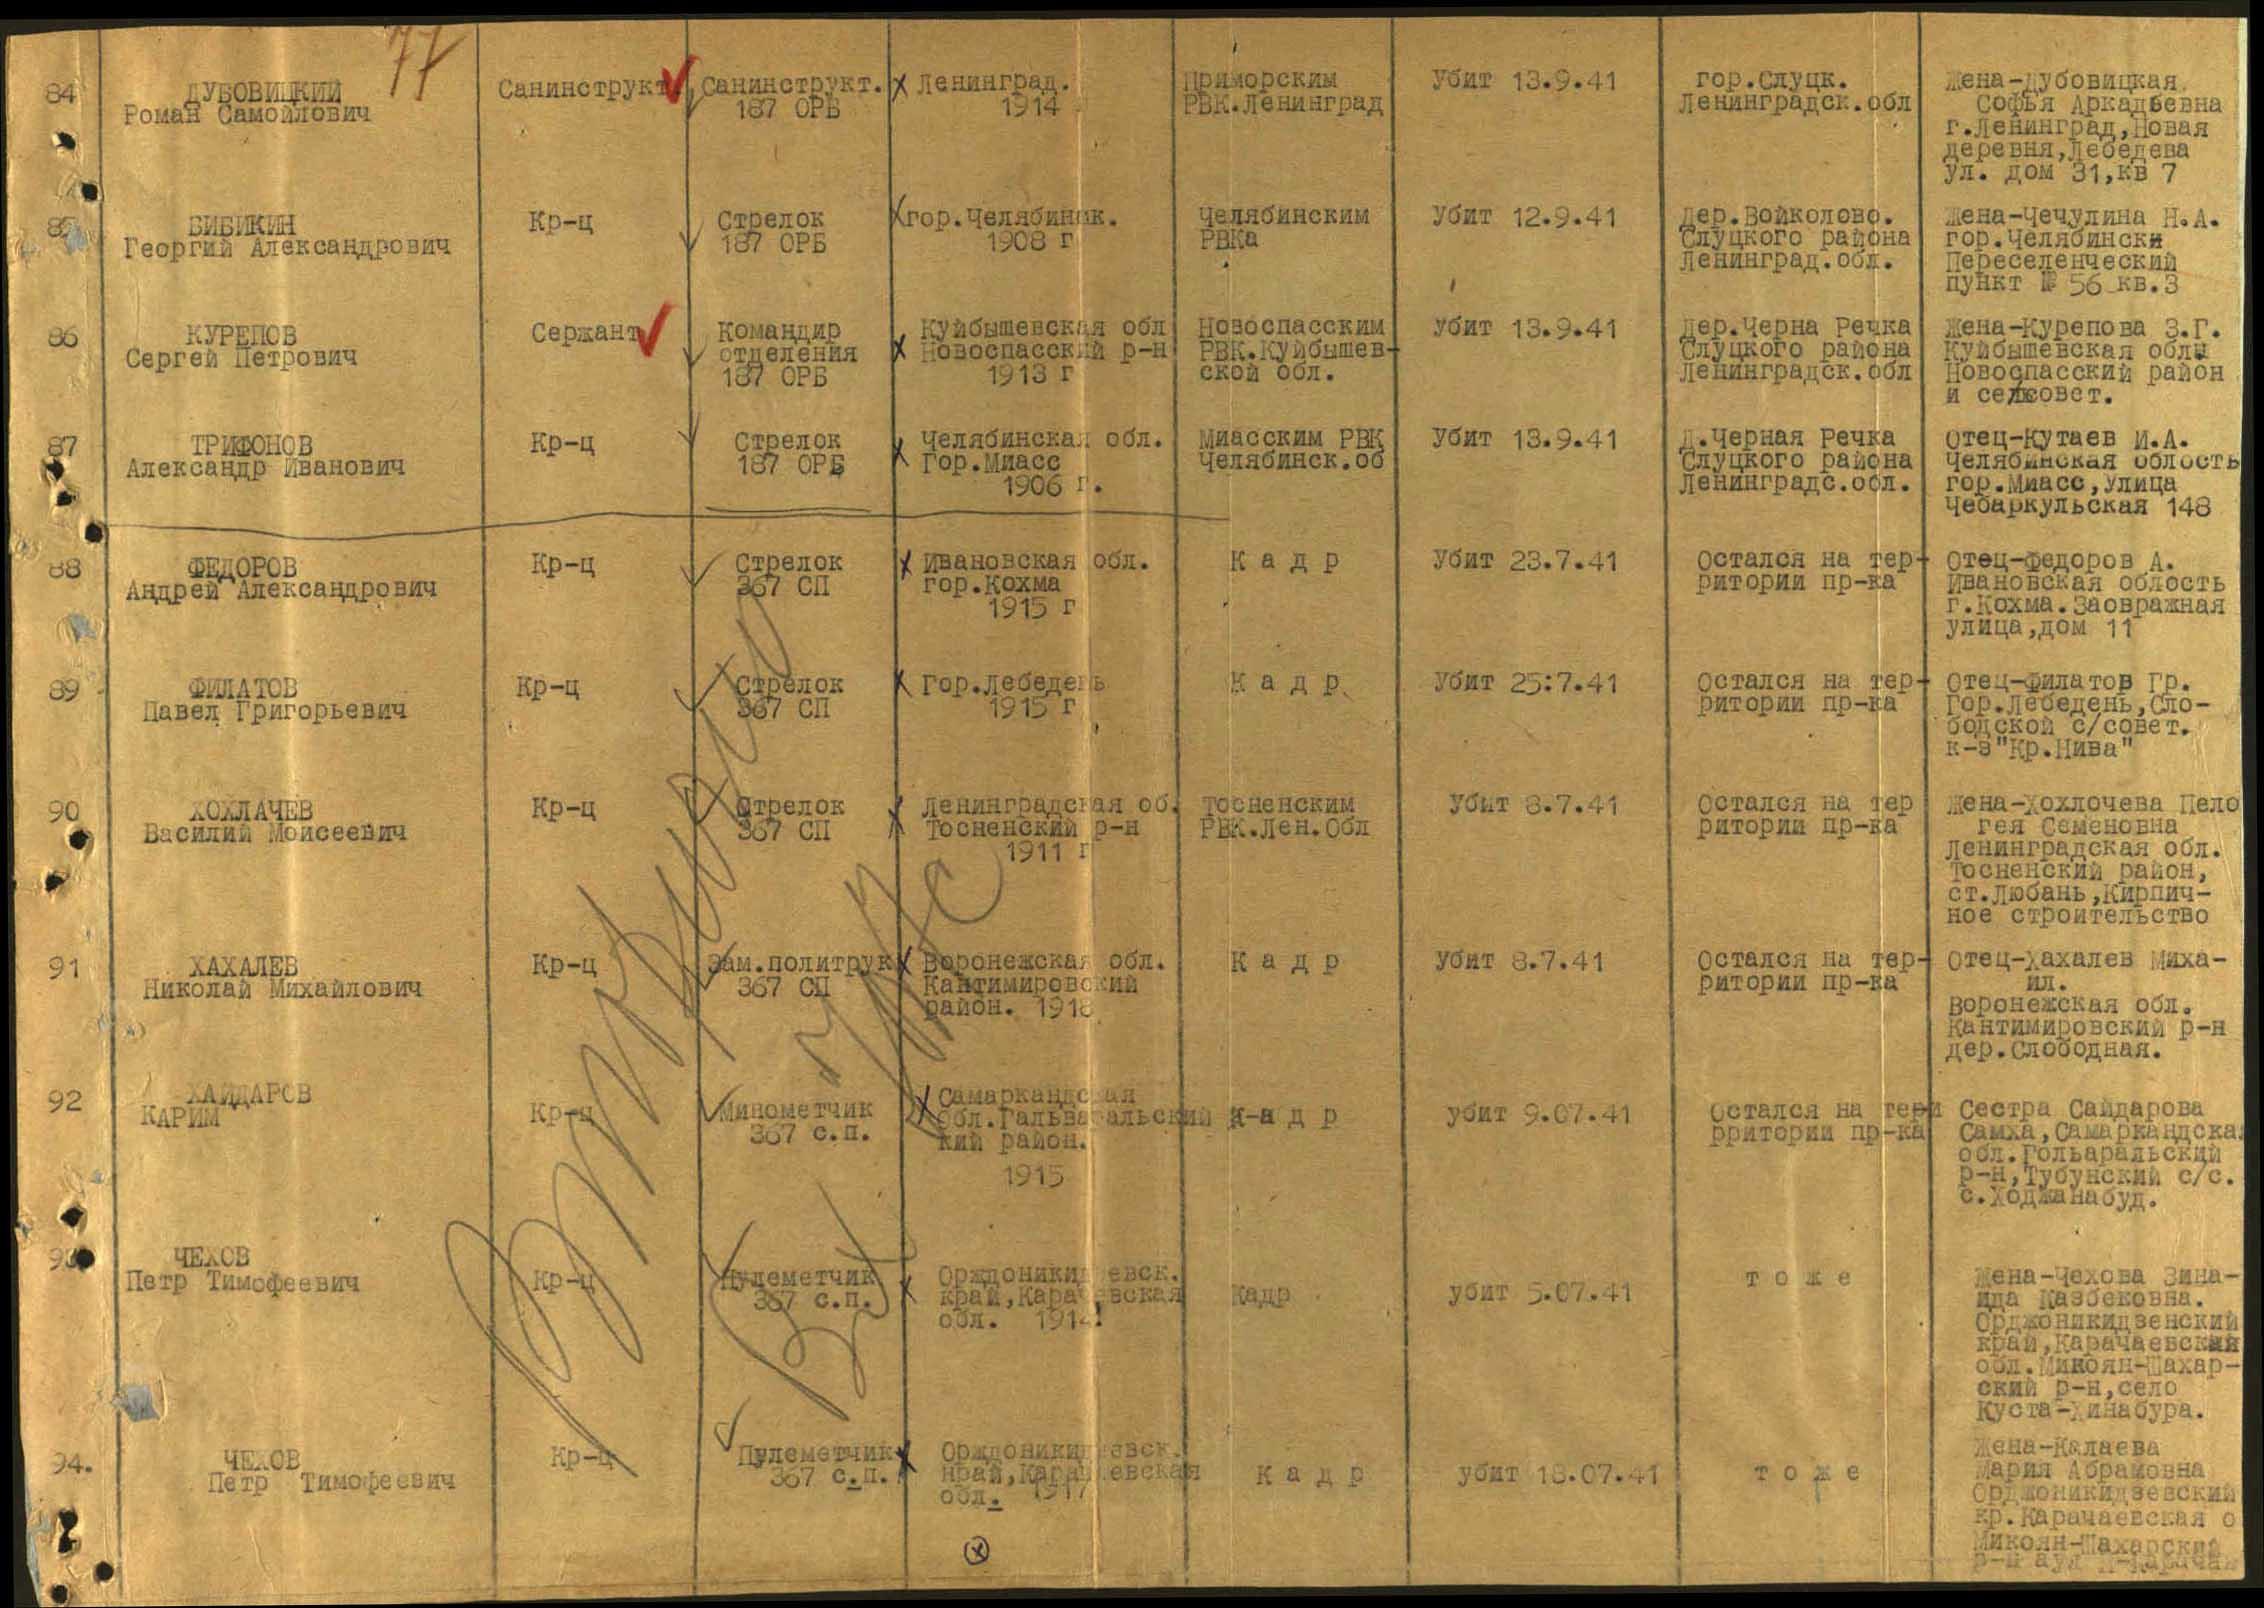 77
84
ДУБОВИЦКИЙ
Роман Самойлович
Санинструкт.
Санинструкт.
187 ОРБ
Ленинград.
1914
Приморским
РВК.Ленинград
Убит 13.9.41
гор.Слуцк.
Ленинградск.обл
Жена-Дубовицкая
Софья Аркадьевна
г.Ленинград,Новая
деревня,Лебедева
ул. дом 31,кв 7
85
БИБИКИН
Георгий Александрович
Кр-ц
Стрелок
187 ОРБ
гор.Челябинск.
1908 г
Челябинским
РВКа
Убит 12.9.41
Дер.Войколово.
Слуцкого района
Ленинград.обл.
Жена-Чечулина Н.А.
гор.Челябински
Переселенческий
пункт № 56 кв.3
86
КУРЕПОВ
Сергей Петрович
Сержант
Командир
отделения
187 ОРБ
Куйбышевская обл
Новоспасский р-н
1913 г
Новоспасским
РВК.Куйбышев-
ской обл.
Убит 13.9.41
Дер.Черна Речка
Слуцкого района
Ленинградск.обл
Жена-Курепова З.Г.
Куйбышевская обл
Новоспасский район
и сельсовет.
87
ТРИФОНОВ
Александр Иванович
Кр-ц
Стрелок
187 ОРБ
Челябинская обл.
Гор.Миасс
1906 г.
Миасским РВК
Челябинск.об
Убит 13.9.41
Д.Черная Речка
Слуцкого района
Ленинградс.обл.
Отец-Кутаев И.А.
Челябинская облость
гор.Миасс,улица
Чебаркульская 148
88
ФЕДОРОВ
Андрей Александрович
Кр-ц
Стрелок
367 СП
Ивановская обл.
гор.Кохма
1915 г
К а д р
Убит 23.7.41
Остался на тер-
ритории пр-ка
Отец-Федоров А.
Ивановская облость
г.Кохма.Заовражная
улица,дом 11
89
ФИЛАТОВ
Павел Григорьевич
Кр-ц
Стрелок
367 СП
Гор.Лебедень
1915 г
К а д р
Убит 25:7.41
Остался на тер-
ритории пр-ка
Отец-Филатов Гр.
Гор.Лебедень,Сло-
бодской с/совет.
к-з"Кр.Нива"
90
ХОХЛАЧЕВ
Василий Моисеевич
Кр-ц
Стрелок
367 СП
Ленинградская об.
Тосненский р-н
1911 г
Тосненским
РВК.Лен.Обл
Убит 8.7.41
Остался на тер
ритории пр-ка
Жена-Хохлочева Пело
гея Семеновна
Ленинградская обл.
Тосненский район,
ст.Любань,Кирпич-
ное строительство
91
ХАХАЛЕВ
Николай Михайлович
Кр-ц
Зам.политрук
367 СП
Воронежская обл.
Кантимировский
район. 1918
К а д р
Убит 8.7.41
Остался на тер-
ритории пр-ка
Отец-Хахалев Миха-
ил.
Воронежская обл.
Кантимировский р-н
дер.Слободная.
92
ХАЙДАРОВ
КАРИМ
Кр-ц
Минометчик
367 с.п.
Самаркандская
обл.
кий район.
1915
К-а д р
убит 9.07.41
Остался на тери
рритории пр-ка
Сестра Сайдарова
Самха,Самаркандска
обл.Гольаральский
р-н,Тубунский с/с.
с.Ходжанабуд.
93
ЧЕХОВ
Петр Тимофеевич
Кр-ц
Пулеметчик
367 с.п.
Орждоникидзевск.
край,Карачаевская
обл. 1914.
Кадр
убит 5.07.41
т о ж е
Жена-Чехова Зина-
ида Казбековна.
Орджоникидзенский
край,Карачаевский
обл.Микоян-Шахар-
ский р-н,село
Куста-Хинабура.
94.
ЧЕХОВ
Петр Тимофеевич
Кр-ц
Пулеметчик
367 с.п.
Орждоникидзевск.
край,Карачаевская
обл. 1917
К а д р
убит 18.07.41
т о ж е
Жена-Калаева
Мария Абрамовна
Орджоникидзевский
кр.Карачаевская о
Микоян-Шахарский
р-н аул